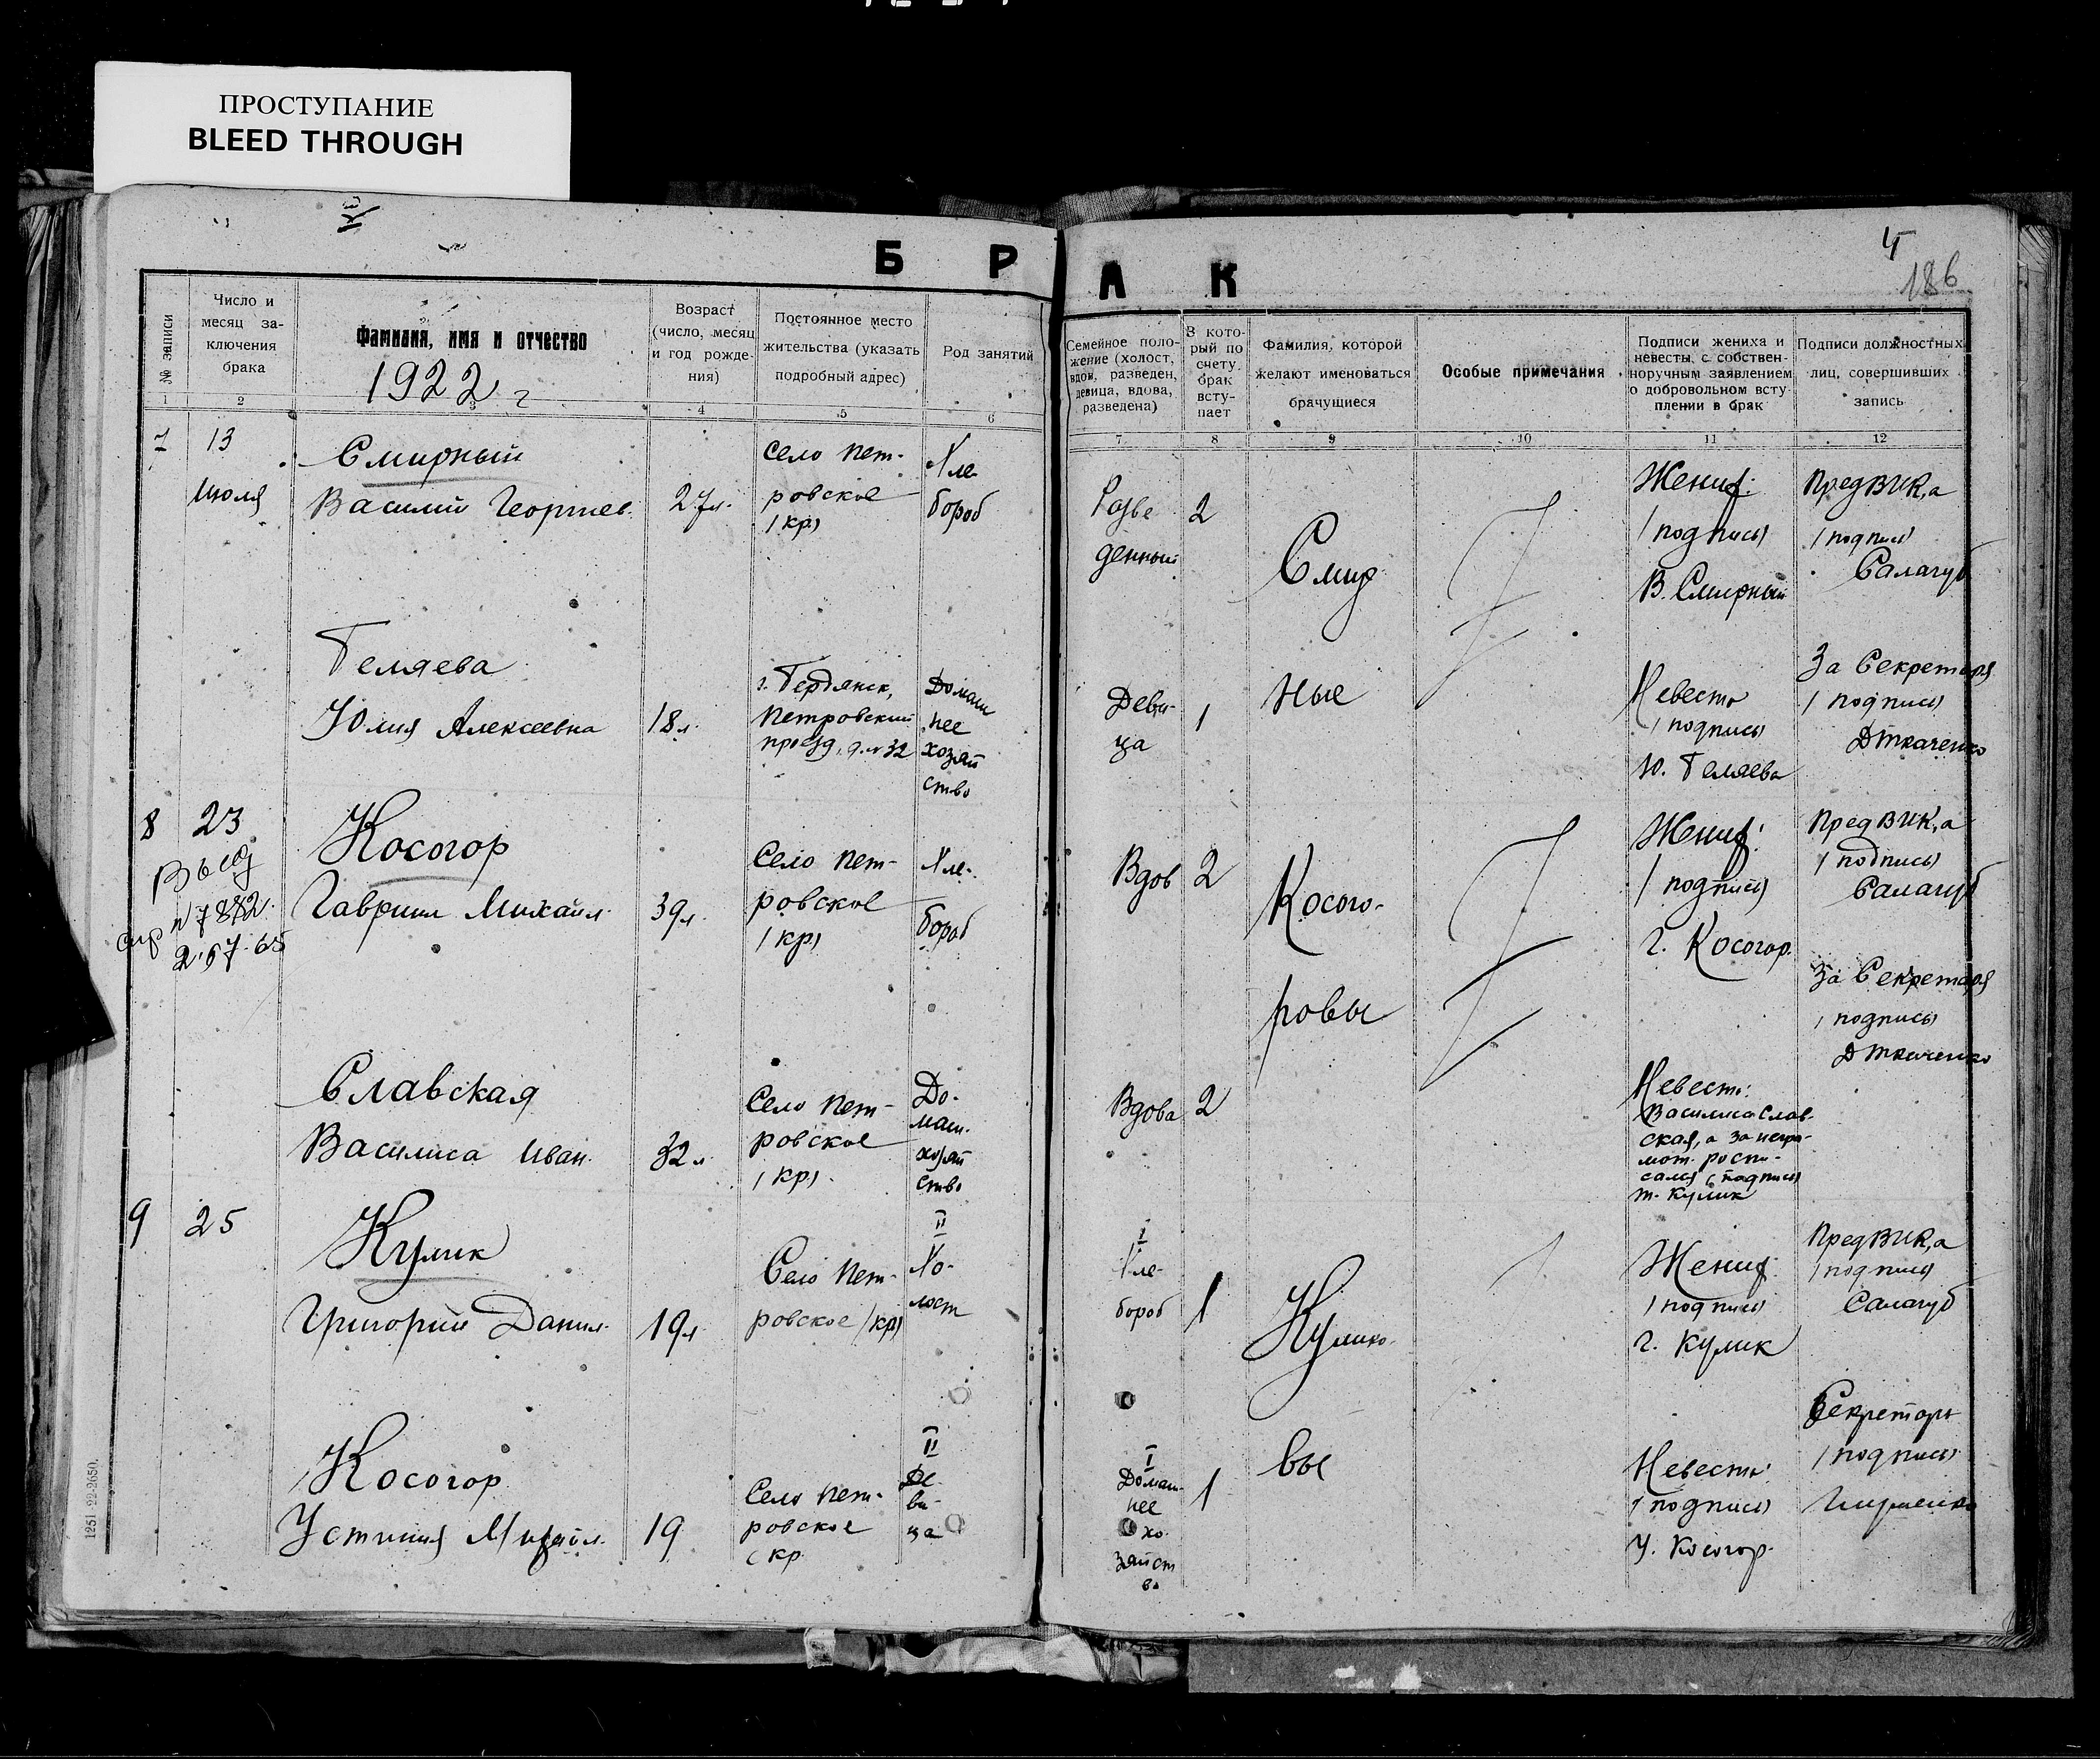 ПРОСТУПАНИЕ
BLEED THROUGH
Б Р А К
4
186
№ записи
Число и месяц за-
ключения
брака
Фамилия, имя и отчество
1922 г
Возраст
(число, месяц
и год рожде-
ния)
Постоянное место
жительства (указать
подробный адрес)
Род занятий
Семейное поло-
жение (холост,
вдов, разведен,
девица, вдова,
разведена)
В кото-
рый по
счету
брак
всту-
пает
Фамилия, которой
желают именоваться
брачущиеся
Особые примечания
Подписи жениха и
невесты, с собствен-
норучным заявлением
о добровольном всту-
плении в брак
Подписи должностных
лиц, совершивших
запись
1 2 3 4 5 6 7 8 9 10 11 12
7
13
июля
Смирный
Василий Георгиев.
27л.
село Пет-
ровское
(кр)
Хле-
бороб
Разве
денный
2
Смир
ные
Жених:
(подпись)
В. Смирный
ПредВИК,а
(подпись)
Салагуб
Беляева
Юлия Алексеевна
18л.
г. Бердянск,
Петровский
проезд, д. № 32
Домаш
нее
хозяй
ство
Деви-
ца
1
Невеста
(подпись)
Ю. Беляева
За Секретаря
(подпись)
Д Ткаченко
8
23
Выд
спр № 7872
2.67.65
Косогор
Гавриил Михайл.
39л.
Село Пет-
ровское
(кр)
Хле-
бороб
Вдов
2
Косого-
ровы
Жених:
(подпись)
Г. Косогор.
ПредВИК,а
(подпись)
Салагуб
За Секретаря
(подпись)
Д Ткаченко
Славская
Василиса Иван.
32л.
Село Пет-
ровское
(кр).
До-
маш.
хозяй
ство
Вдова
2
Невеста:
Василиса Слав-
ская, а за негра-
мот. распи-
сался (подпись)
т. Кулик
9
25
Кулик
Григорий Данил.
19л.
Село Пет-
ровское (кр)
II
Хо-
лост
I
Хле-
бороб
1
Кулико-
вы
Жених
(подпись)
Г. Кулик
ПредВИК,а
(подпись)
Салагуб
Косогор
Устиния Михайл.
19
Село Пет-
ровское
(кр
II
Де-
ви-
ца
I
Домаш-
нее
хо-
зяйст
во
1
Невеста:
(подпись)
У. Косогор.
Секретарь
(подпись)
1251 22-2650.